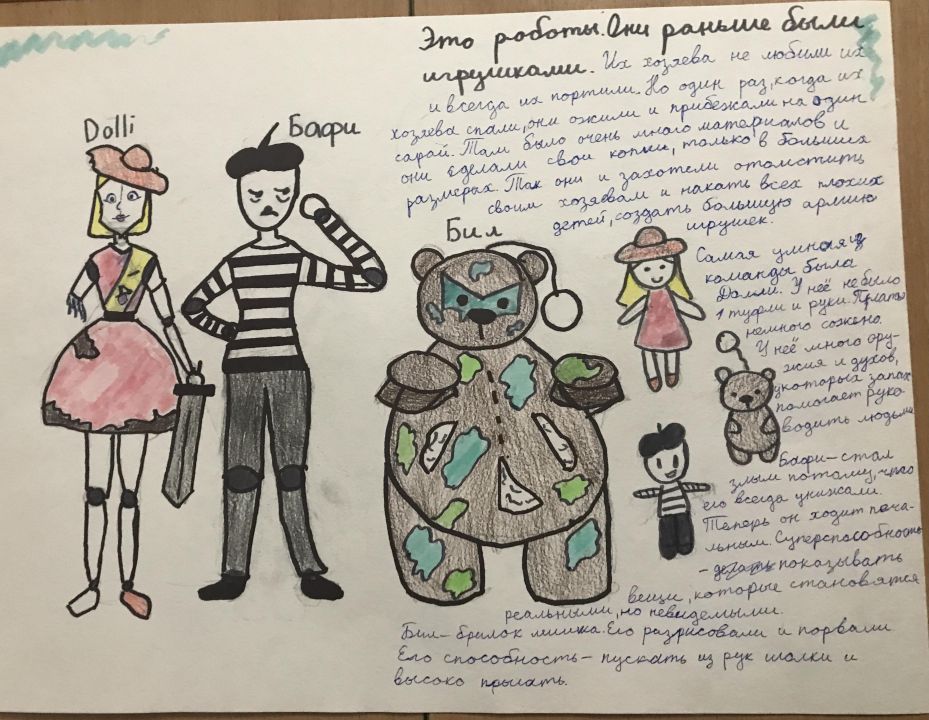 Это роботы. Они раньше были
игрушками. Их хозяева не любили их
и всегда их портили. Но один раз, когда их
хозяева спали, они ожили и прибежали на один
сарай. Там было очень много материалов и
они сделали свои копии, только в больших
размерах. Так они и захотели отомстить
своим хозяевам и накать всех плохих
детей, создать большую армию
игрушек.
Dolli
Баффи
Бил
Самая умная из
команды была
Долли. У неё не было
1 туфли и руки. Платье
немного сожено.
У неё много ору-
жия и духов,
укоторых запах
помогает руко-
водить людьми
Баффи - стал
злым потому, что
его всегда унижали.
Теперь он ходит печа-
льным. Суперспособность
- показывать
вещи, которые становятся
реальными, но невидемыми.
Бил - брилок мишка. Его разрисовали и порвали
Его способность - пускать из рук иголки и
высоко прыгать.